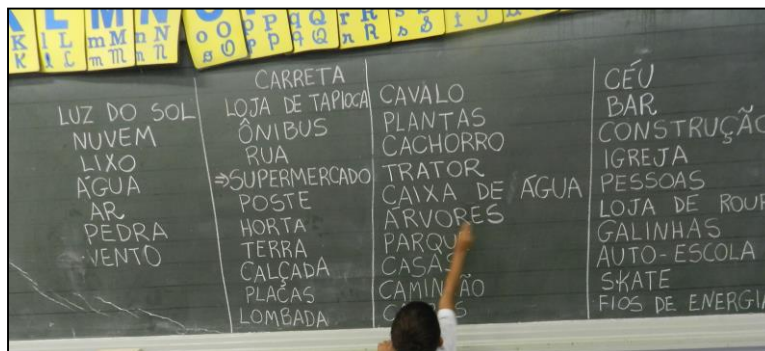 K L M N O P Q R S
K k L l m M n N o O p P q Q r R s S
LUZ DO SOL
NUVEM
LIXO
ÁGUA
AR
PEDRA
VENTO
CARRETA
LOJA DE TAPIOCA
ÔNIBUS
RUA
⇒SUPERMERCADO
POSTE
HORTA
TERRA
CALÇADA
PLACAS
LOMBADA
CAVALO
PLANTAS
CACHORRO
TRATOR
CAIXA DE ÁGUA
ÁRVORES
PARQU
CASAS
CAMINHÃO
CÉU
BAR
CONSTRUÇÃO
IGREJA
PESSOAS
LOJA DE ROUP
GALINHAS
AUTO-ESCOLA
SKATE
FIOS DE ENERGIA